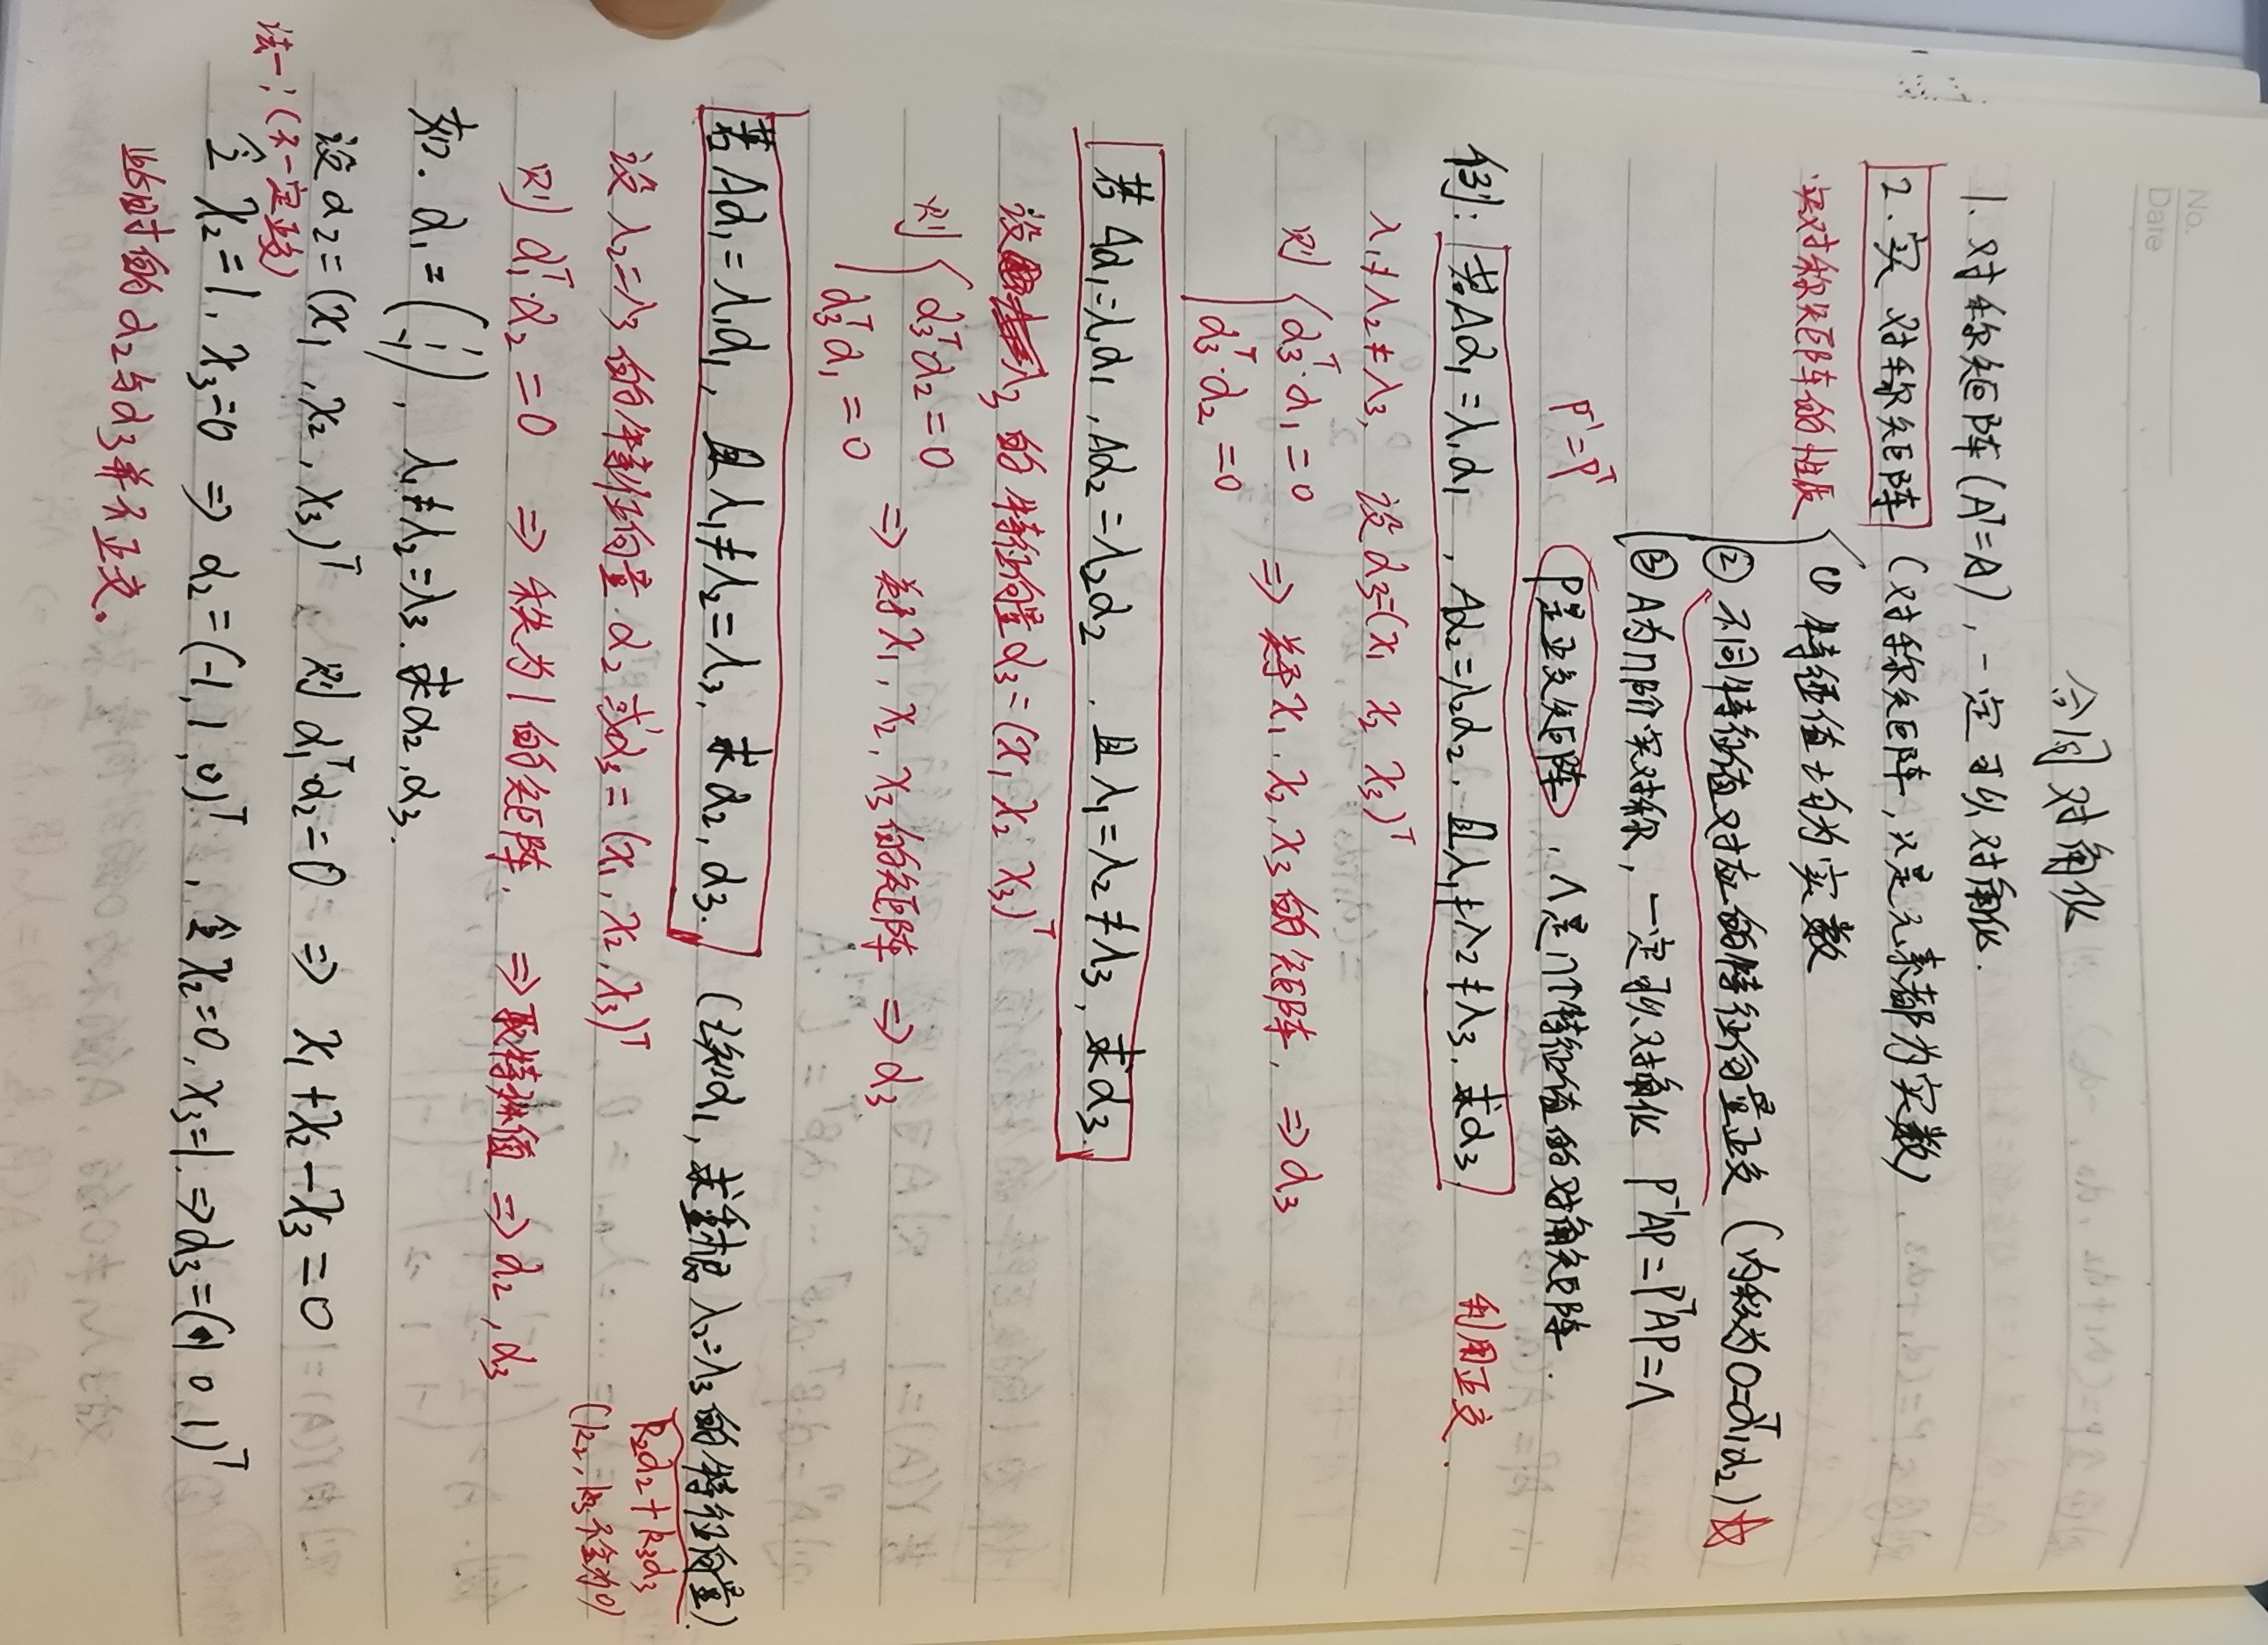 No.
Date
合同对角化
1. 对称矩阵(Aᵀ=A), 一定可以对角化.
2. 实 对称矩阵 (对称矩阵,只是元素都为实数)
实对称矩阵的性质 ① 特征值均为实数
② 不同特征值对应的特征向量正交 (内积为0=α₁ᵀα₂) ☆
③ A为n阶实对称, 一定可以对角化 P⁻¹AP=PᵀAP=Λ
P⁻¹=Pᵀ P是正交矩阵, Λ是n个特征值的对角矩阵.
例: 若Aα₁=λ₁α₁, Aα₂=λ₂α₂. 且λ₁≠λ₂≠λ₃. 求α₃. 利用正交.
λ₁≠λ₂≠λ₃, 设α₃=(x₁ x₂ x₃)ᵀ
则 { α₃ᵀ·α₁=0 ⇒ 关于x₁.x₂,x₃的矩阵, ⇒ α₃
α₃ᵀ·α₂=0
若Aα₁=λ₁α₁,Aα₂=λ₂α₂. 且λ₁=λ₂≠λ₃, 求α₃.
设λ₃的特征向量α₃=(x₁ x₂ x₃)ᵀ
则 { α₃ᵀ·α₂=0 ⇒ 关于x₁,x₂,x₃的矩阵 ⇒ α₃
α₃ᵀα₁=0
若Aα₁=λ₁α₁, 且λ₁≠λ₂=λ₃, 求α₂,α₃. (已知α₁,求重根λ₂=λ₃的特征向量).
k₂α₂+k₃α₃
(k₂,k₃不全为0)
设λ₂=λ₃的特征向量α₂或α₃=(x₁,x₂,x₃)ᵀ
则 α₁ᵀ·α₂=0 ⇒ 秩为1的矩阵. ⇒取特殊值 ⇒ α₂,α₃
如. α₁=(1 1 -1), λ₁≠λ₂=λ₃. 求α₂,α₃.
设α₂=(x₁,x₂,x₃)ᵀ. 则α₁ᵀ·α₂=0 ⇒ x₁+x₂-x₃=0
法一:(不一定正交)
令x₂=1, x₃=0 ⇒ α₂=(-1,1,0)ᵀ, 令x₂=0,x₃=1.⇒α₃=(1 0 1)ᵀ
此时的α₂与α₃并不正交。